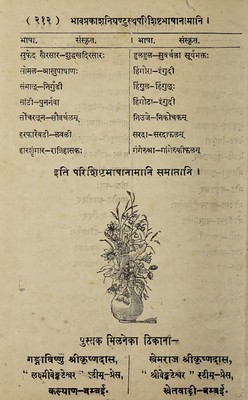 ( २३२ ) भावप्रकाशनिघण्टुस्थपरिशिष्टभाषानामानि ।
भाषा. संस्कृत. भाषा. संस्कृत.
सुफेद खैरसार-शुद्धखदिरसारः हुलहुल-सुवर्चला सूर्यभक्तः
सोमल-आखुपाषाणः हिंगोरा-इंगुदी
संभालू-निर्गुंडी हिंगुल-हिंगुलः
सांटी-पुनर्नवा हिंगोटा-इंगुदी
सोंचरलून-सौवर्चलम् निउजे-निकोचकम्
हरफारेवडी-लवली सरदा-सरदाफलम्
हारशृंगार- गंगेरुआ-गांगेरुकीफलम्
इति परिशिष्टभाषानामानि समाप्तानि ।
पुस्तक मिलनेका ठिकाना-
गङ्गाविष्णु श्रीकृष्णदास, खेमराज श्रीकृष्णदास,
"लक्ष्मीवेङ्कटेश्वर" स्टीम-प्रेस, "श्रीवेङ्कटेश्वर" स्टीम्-प्रेस,
कल्याण-बम्बई. खेतवाडी-बम्बई.